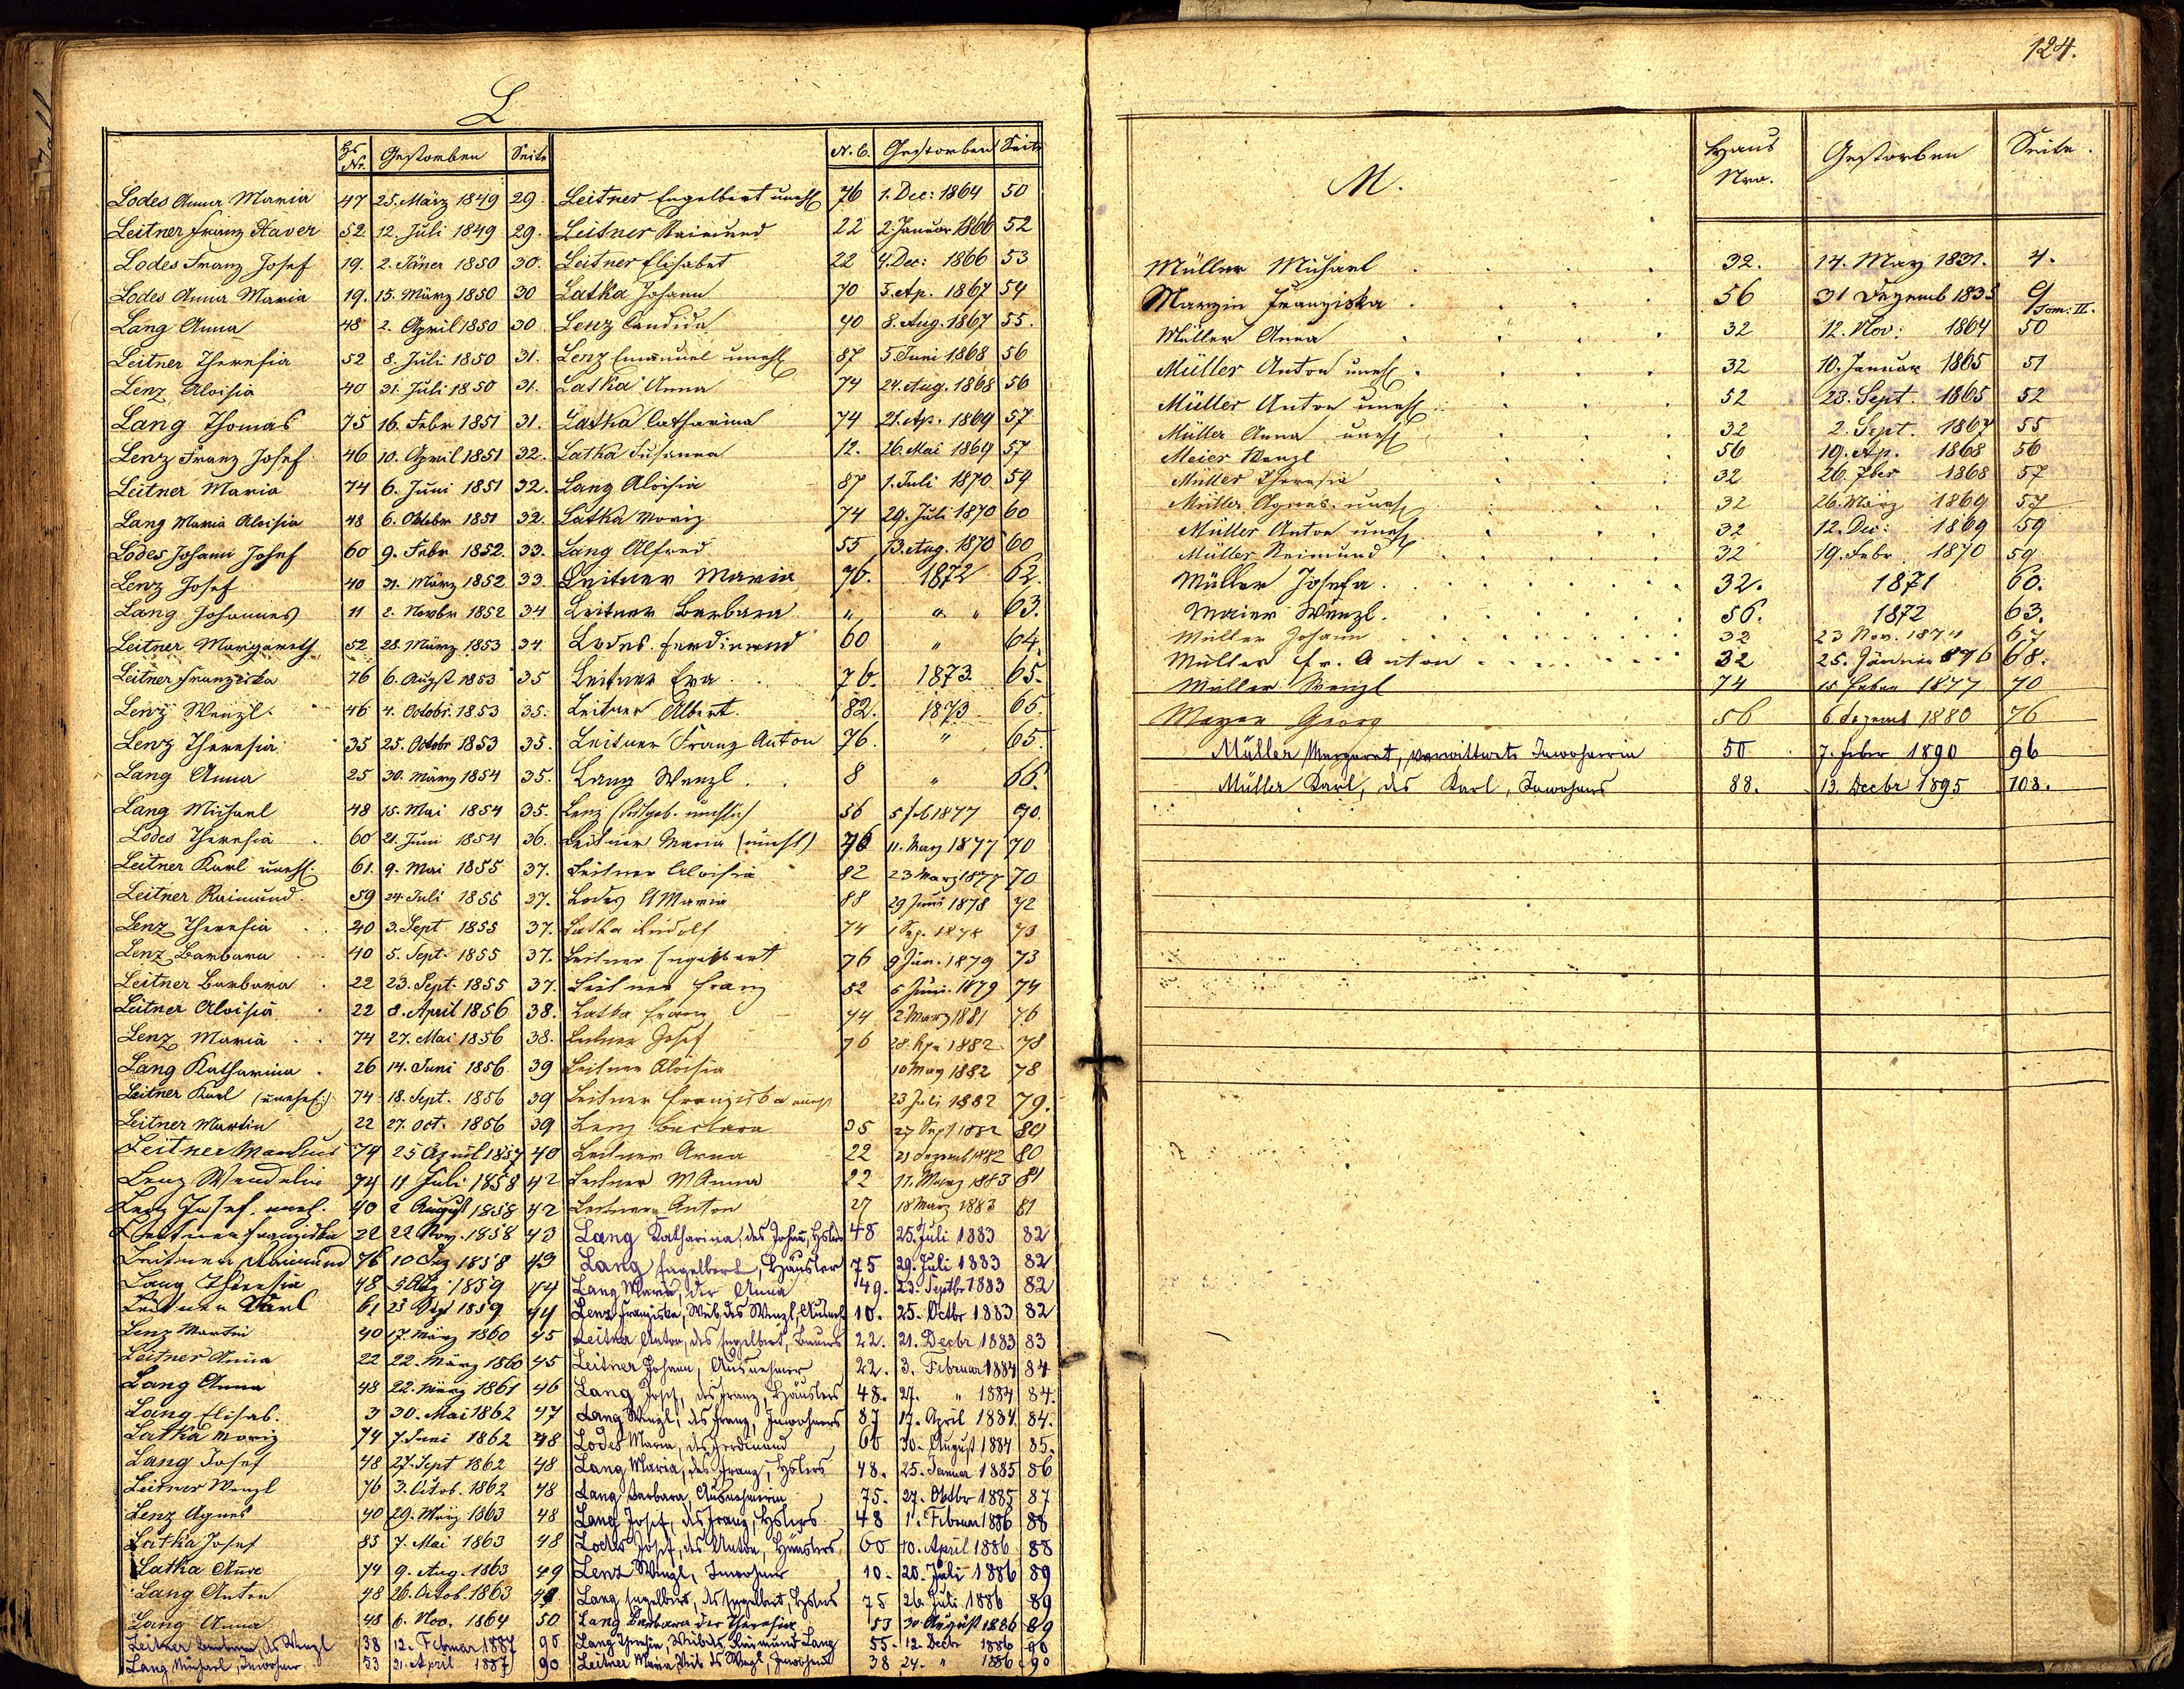 L
Hs Nr. Gestorben Seite
Lodes Anna Maria 47 25. März 1849 29
Leitner Franz Xaver 52. 12. Juli 1849 29.
Lodes Franz Josef 19. 2. Jäner 1850 30.
Lodes Anna Maria 19. 15. März 1850 30
Lang Anna 48 2. April 1850 30
Leitner Theresia 52 8. Juli 1850 31.
Lenz Aloisia 40 31. Juli 1850 31.
Lang Thomas 75 16. Febr 1851 31.
Lenz Franz Josef 46 10. April 1851 32.
Leitner Maria 74 6. Juni 1851 32.
Lang Maria Aloisia 48 6. Oktober 1851 32.
Lodes Johann Josef 60 9. Febr 1852. 33.
Lenz Josef 40 31. März 1852 33
Lang Johannes 11 2. Novbr 1852 34
Leitner Margareth 52 28. März 1853 34.
Leitner Franziska 76 6. Augst 1853 35
Lenz Wenzl. 46 4. Octobr. 1853 35.
Lenz Theresia 35 25. Octobr 1853 35.
Lang Anna 25 30. März 1854 35.
Lang Michael 48 15. Mai 1854 35.
Lodes Theresia 60 21. Juni 1854 36.
Leitner Karl unehl. 61. 9. Mai 1855 37.
Leitner Raimund. 59 24. Juli 1855 37.
Lenz Theresia 40 3. Sept 1855 37.
Lenz Barbara 40 5. Sept. 1855 37.
Leitner Barbara 22 23. Sept. 1855 37.
Leitner Aloisia 22 8. April 1856 38.
Lenz Maria 74 27. Mai 1856 38.
Lang Katharina 26 14. Juni 1856 39
Leitner Karl (unehel:) 74 18. Sept. 1856 39
Leitner Martin 22 27. Oct. 1856 39
Leitner Markus 74 25 April 1857 40
Lenz Wendelin 74 11 Juli 1858 42
Lenz Josef. unel. 40 2 August 1858 42
Leitner Franziska 22 22 Nov. 1858 43
Leitner Raimund 76 10 Dez 1858 43
Lang Theresia 48 1859 44
Leitner Karl 61 23 Dez 1859 44
Lenz Martin 40 17. März 1860 45
Leitner Anna 22 22. März 1860 45
Lang Anna 48 22. März 1861 46
Lang Elisab. 3 30. Mai 1862 47
Latka Moriz 74 7. Juni 1862 48
Lang Josef 48 27. Sept 1862 48
Leitner Wenzl 76 3. Octob. 1862 48
Lenz Agnes 40 29. März 1863 48
Latka Josef 85 7. Mai 1863 48
Latka Anna 74 9. Aug. 1863 49
Lang Anton 48 26. Octob. 1863 49
Lang Anna 48 6. Nov. 1864 50
Leitner Barbara, des Wenzl 38 12. Februar 1887 90
Lang Michael, Inwohner 53 21. April 1887 90
N. C. Gestorben Seite
Leitner Engelbert unehl 76 1. Dec: 1864 50
Leitner Raimund 22 2. Januar 1866 52
Leitner Elisabet 22 4. Dec: 1866 53
Latka Johann 70 5. Ap. 1867 54
Lenz Candida 40 8. Aug. 1867 55.
Lenz Emanuel unehl 87 5. Juni 1868 56
Latka Anna 74 24. Aug. 1868 56
Latka Catharina 74 21. Ap. 1869 57
Latka Susanna 12. 26. Mai 1869 57
Lang Aloisia 87 1. Juli 1870 59
Latka Moriz 74 29. Juli 1870 60
Lang Alfred 55 13. Aug. 1870 60
Leitner Maria 76. 1872 62.
Leitner Barbara " " " 63.
Lodes Ferdinand 60 " 64.
Leitner Eva 76. 1873 65.
Leitner Albert. 82. 1873 65.
Leitner Franz Anton 76. " 65.
Lang Wenzl. 8 " 66.
Lenz 56 5 feb 1877 70.
Leitner Maria (unehl) 76 11. März 1877 70
Leitner Aloisia 82 23 März 1877 70
Lodes A Maria 88 29 Juni 1878 72
Latka Rudolf 74 1 Sep. 1878 73
Leitner Engelbert 76 9 Jän. 1879 73
Leitner Franz 82 6 Juni. 1879 74
Latka Franz 74 2 März 1881 76
Leitner Josef 76 28. Apr 1882 78
Leitner Aloisia 10 May 1882 78
Leitner Franziska unehl 23 Juli 1882 79.
Lenz Barbara 35 27 Sept 1882 80
Leitner Anna 22 21 Dezemb 1882 80
Leitner M Anna 22 11. März 1883 81
Leitner Anton 27 18 März 1883 81
Lang Katharina, des Johan, Hslers 48 25. Juli 1883 82
Lang Engelbert, Häusler 75 29. Juli 1883 82
Lang Maria, der Anna 49. 23. Septbr 1883 82
Lenz Franziska, Weib des Wenzl, Ausneh 10. 25. Octbr 1883 82
Leitner Anton, des Engelbert, Bauers 22. 21. Decbr 1883 83
Leitner Johann, Ausnehmer 22. 3. Februar 1884 84
Lang Josef, des Franz, Häuslers 48. 27. " 1884 84.
Lang Wenzl, des Franz, Inwohners 87 17. April 1884. 84.
Lodes Maria, des Ferdinand 60 30. August 1884 85.
Lang Maria, des Franz, Hslers 48. 25. Januar 1885 86
Lang Barbara, Ausnehmerin 75. 27. Oktbr 1885 87
Lang Josef, des Franz, Hslers 48 1. Februar 1886 88
Lodes Josef, des Anton, Häuslers 60 10. April 1886 88
Lenz Wenzl, Inwohner 10. 20. Juli 1886 89
Lang Engelbert, des Engelbert, Hslers 75 26. Juli 1886 89
Lang Barbara der Theresia 53 30 August 1886 89
Lang Theresia, Weib des Raimund Lang 55. 12 Decbr 1886 90
Leitner Maria, Weib des Wenzl, Inwohners 38 24. " 1886 90
124.
M. Haus Nro. Gestorben Seite.
Müller Michael 32. 14. May 1831. 4.
Marzin Franziska 56 31 Dezemb 1835 9
Tom: II.
Müller Anna 32 12. Nov: 1864 50
Müller Anton unehl. 32 10. Januar 1865 51
Müller Anton unehl 52 23. Sept. 1865 52
Müller Anna unehl 32 2. Sept. 1867 55
Meier Wenzl 56 19. Ap. 1868 56
Müller Theresia 32 26. 7ber 1868 57
Müller Agnes. unehl 32 26. März 1869 57
Müller Anton unehl 32 12. Dec: 1869 59
Müller Reimund 32 19. Febr 1870 59
Müller Josefa. 32. 1871 60.
Maier Wenzl. 56. 1872 63.
Müller Johann 32 23 Nov. 1874 67
Müller Fr. Anton 32 25. Jänner 876 68.
Müller Wenzl 74 15 Feber 1877 70
Mayer Georg 56 6 dezemb 1880 76
Müller Margaret, verwittwete Inwohnerin 50 7. Feber 1890 96
Müller Karl, des Karl, Inwohners 88. 13. Decbr 1895 108.